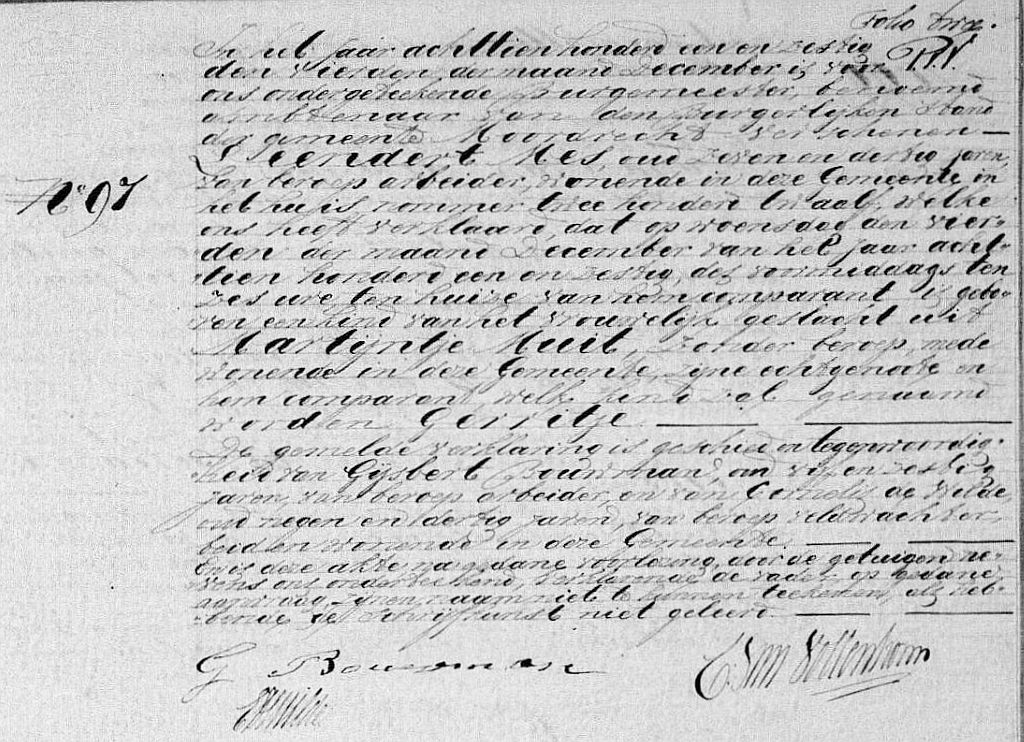 Folio
In het jaar achttien honderd een en zestig
den vierden der maand December is voor
ons ondergeteekende Burgemeester, benoemd
ambtenaar van den Burgerlijken Stand
der gemeente Moordrecht verschenen —
Leendert Mes, oud zeven en dertig jaren,
van beroep arbeider, wonende in deze Gemeente in
het huis nommer twee honderd twaalf, welke
ons heeft verklaard, dat op woensdag den vier-
den der maand December van het jaar acht-
tien honderd een en zestig, des voormiddags ten
zes ure, ten huize van hem comparant is gebo-
ren een kind van het vrouwelijk geslacht uit
Martijntje Muit, zonder beroep, mede
wonende in deze Gemeente, zijne echtgenoote en
hem comparant welk kind zal genaamd
worden Gerritje. —
De gemelde verklaring is geschied in tegenwoordig-
heid van Gijsbert Bouwman, oud vijf en zestig
jaren, van beroep arbeider, en van Cornelis de Wilde,
oud negen en dertig jaren, van beroep veldwachter,
beiden wonende in deze Gemeente. —
En is deze akte na gedane voorlezing, door de getuigen ne-
vens ons onderteekend, verklarende de vader op gedane
aanvraag, zijnen naam niet te kunnen teekenen, als heb-
bende de schrijfkunst niet geleerd. —
No 97
G Bouwman
C van Vollenhoven